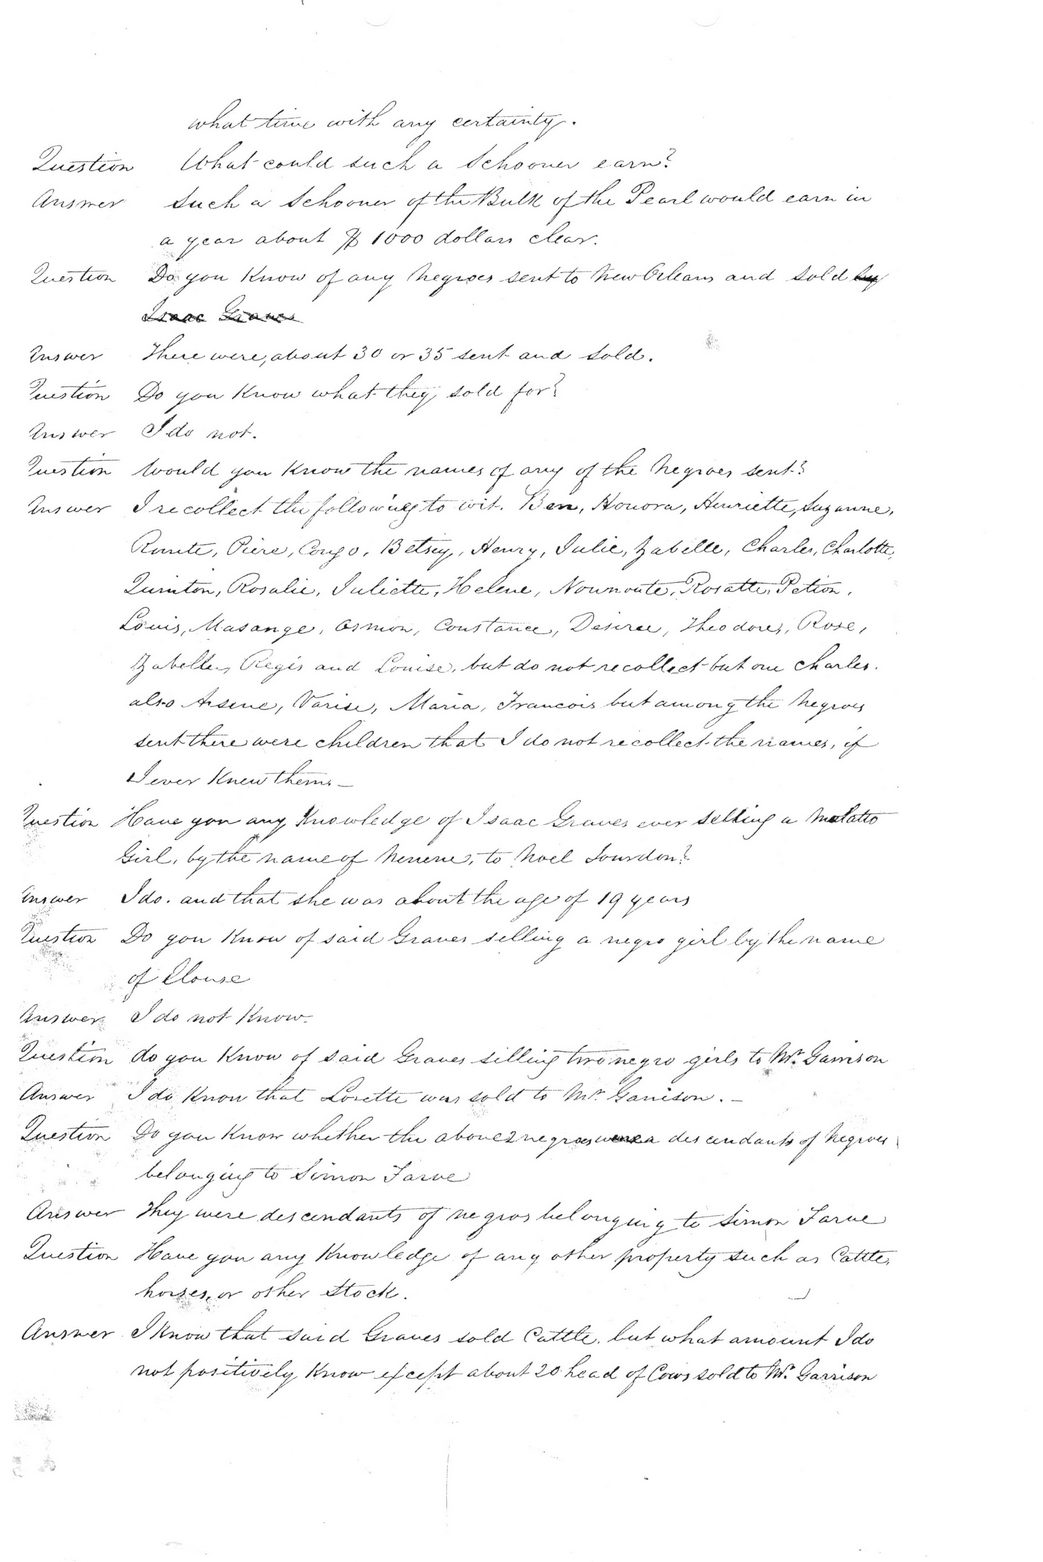 what time with any certainty.
Question What could such a Schooner earn?
Answer Such a Schooner of the Bulk of the Pearl would earn in
a year about $1000 dollars clear.
Question Do you Know of any Negroes sent to New Orleans and sold by
Isaac Graves
Answer There were, about 30 or 35 sent and sold.
Question Do you Know what they sold for?
Answer I do not.
Question Would you Know the names of any of the Negroes sent?
Answer I recollect the following to wit. Ben, Honora, Henriette, Suzanne,
Piere, Congo, Betsey, Henry, Julie, Zabelle, Charles, Charlotte,
Quinton, Rosalie, Juliette, Helene, Nounoute, Rosatte, Petion,
Louis, Masange, Osmon, Constance, Desiree, Theodore, Rose,
Zabelle, Regis and Louise, but do not recollect but one Charles.
also Arsene, Varise, Maria, Francois but among the Negroes
sent there were children that I do not recollect the names, if
I ever Knew them. _
Question Have you any Knowledge of Isaac Graves ever selling a Molatto
Girl, by the name of Nenene, to Noel Jourdon?
Answer I do. and that she was about the age of 19 years
Question Do you Know of said Graves selling a negro girl by the name
of Elouse
Answer I do not Know.
Question do you Know of said Graves silling two negro girls to Mr. Garrison
Answer I do Know that Lorette was sold to Mr. Garrison. _
Question Do you Know whether the above 2 negroes descendants of Negroes
belonging to Simon Farve
Answer They were descendants of negros belonging to Simon Farve
Question Have you any Knowledge of any other property such as Cattle,
horses, or other Stock.
Answer I Know that said Graves sold Cattle, but what amount I do
not positively Know except about 20 head of Cows sold to Mr. Garrison